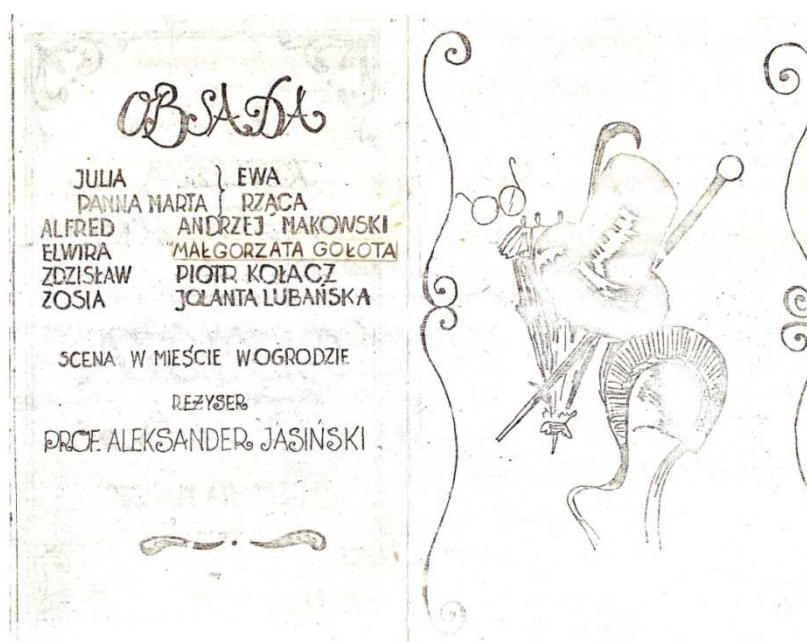 OBSADA
JULIA } EWA
PANNA MARTA } RZĄCA
ALFRED ANDRZEJ MAKOWSKI
ELWIRA MAŁGORZATA GOŁOTA
ZDZISŁAW PIOTR KOŁACZ
ZOSIA JOLANTA LUBAŃSKA
SCENA W MIEŚCIE W OGRODZIE
REŻYSER
PROF. ALEKSANDER JASIŃSKI